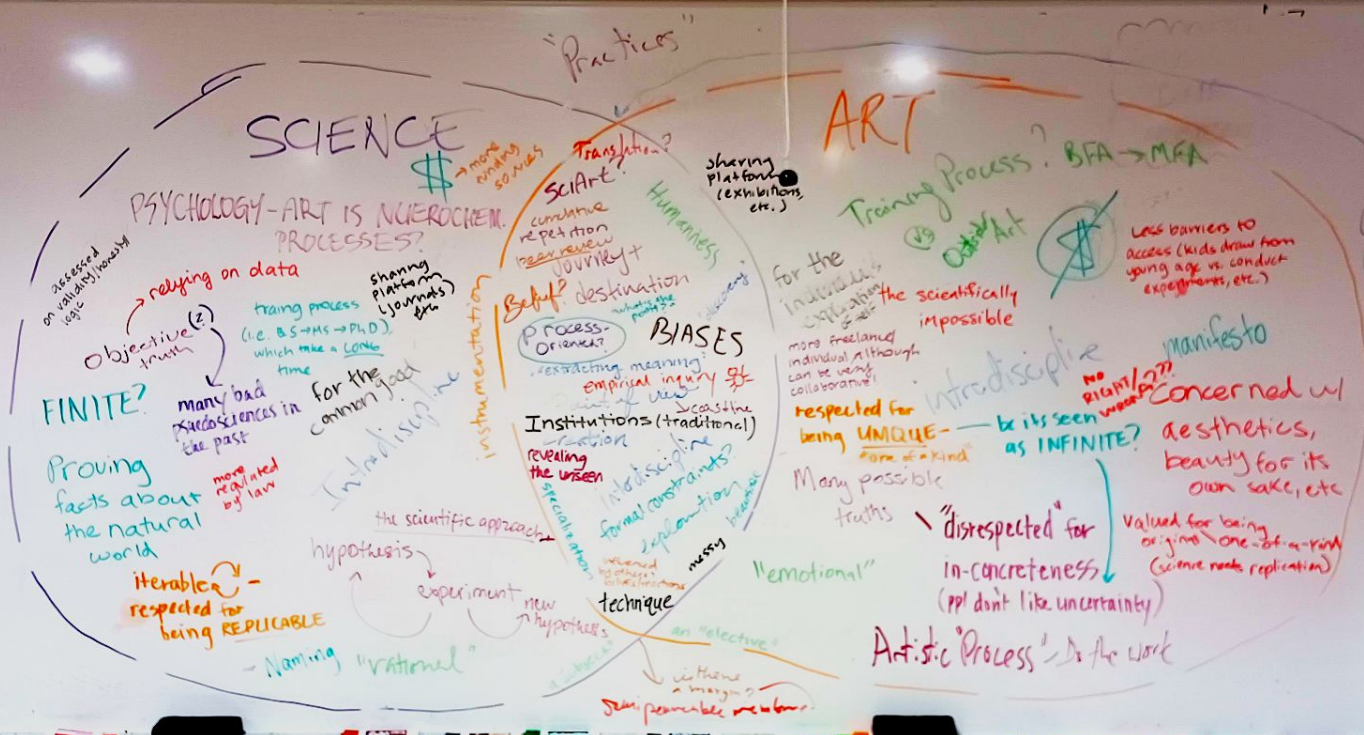 "Practices"
SCIENCE
$ → more
funding
sources
PSYCHOLOGY-ART IS NUEROCHEM.
PROCESSES?
assessed
on validity/honesty
logic
relying on data
objective (?)
truth
many bad
psuedosciences in
the past
traing process
(i.e. BS→MS→PhD),
which take a LONG
time
sharing
platform
(journals)
etc
for the
common good
FINITE?
Intradiscipline
Proving
facts about
the natural
world
more
regulated
by law
the scientific approach
hypothesis
experiment
new
hypothesis
iterable
respected for
being REPLICABLE
- Naming
"rational"
a "subject"
instrumentation
Translation?
SciArt?
cumulative
repetition
peer review
journey +
destination
Belief?
Humanness
"discovery"
what's the
point?
Process-
Oriented?
BIASES
extracting meaning
empirical inquiry
point of view
coastline
Institutions (traditional)
creation
revealing
the unseen
interdiscipline
formal constraints?
exploration
specialization
messy
technique
is there
a margin?
semi permeable membrane
ART
sharing
platform
(exhibitions,
etc.)
Training Process? BFA → MFA
vs
Outsider Art
$
Less barriers to
access (kids draw from
young age vs. conduct
experiments, etc.)
for the
individual's
exploration
of self
the scientifically
impossible
more freelanced
individual, although
can be very
collaborative!
intradiscipline
manifesto
NO
RIGHT/
WRONG???
respected for
being UNIQUE -
"one of a kind"
be its seen
as INFINITE?
Concerned w/
aesthetics,
beauty for its
own sake, etc
Many possible
truths
"disrespected" for
in-concreteness
(ppl don't like uncertainty)
valued for being
original / one-of-a-kind
(science needs replication)
"emotional"
an "elective"
Artistic "Process" - Do the work